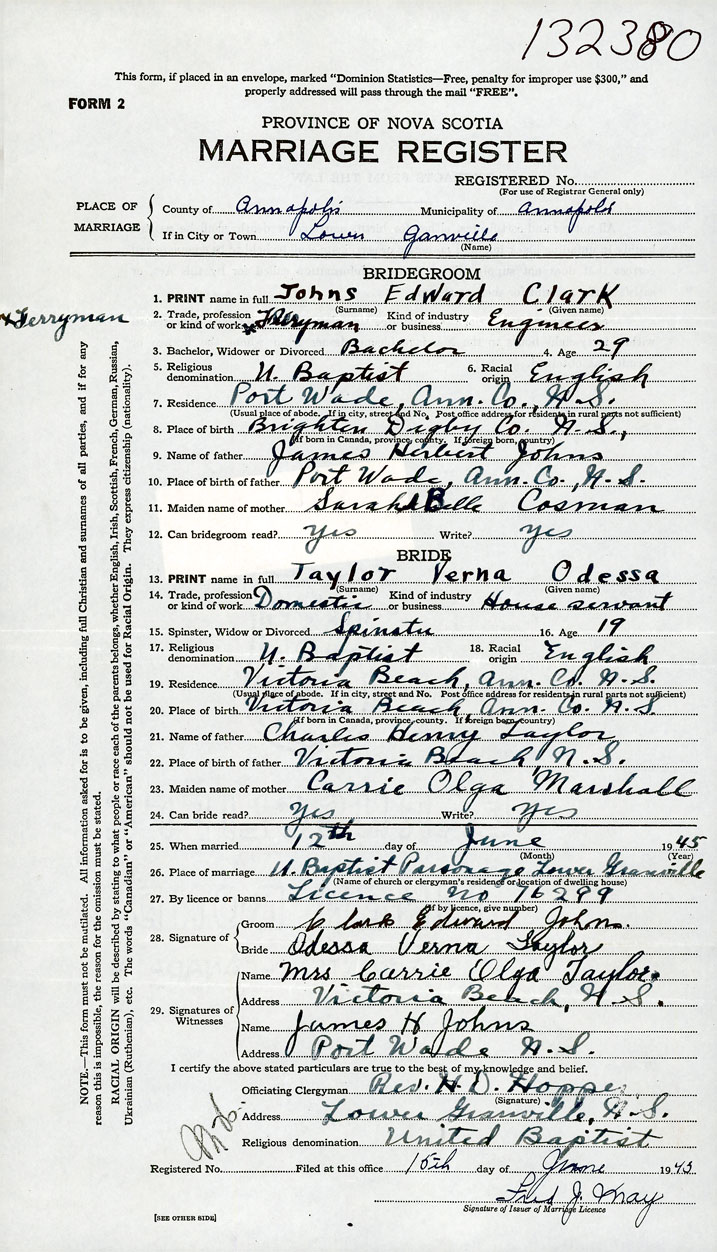 132380
This form, if placed in an envelope, marked "Dominion Statistics—Free, penalty for improper use $300," and
properly addressed will pass through the mail "FREE".
FORM 2
PROVINCE OF NOVA SCOTIA
MARRIAGE REGISTER
REGISTERED No.
(For use of Registrar General only)
PLACE OF MARRIAGE
County of Annapolis Municipality of Annapolis
If in City or Town Lower Granville
(Name)
BRIDEGROOM
1. PRINT name in full Johns Edward Clark
(Surname) (Given name)
x Ferryman
2. Trade, profession or kind of work x Ferryman Kind of industry or business Engineer
3. Bachelor, Widower or Divorced Bachelor 4. Age 29
5. Religious denomination U. Baptist 6. Racial origin English
7. Residence Port Wade, Ann. Co., N.S.
(Usual place of abode. If in city, street and No. Post office address for residents in rural parts not sufficient)
8. Place of birth Brighten Digby Co. N.S.,
(If born in Canada, province, county. If foreign born, country)
9. Name of father James Herbert Johns
10. Place of birth of father Port Wade, Ann. Co., N.S.
11. Maiden name of mother Sarah Belle Cosman
12. Can bridegroom read? yes Write? yes
BRIDE
13. PRINT name in full Taylor Verna Odessa
(Surname) (Given name)
14. Trade, profession or kind of work Domestic Kind of industry or business House servant
15. Spinster, Widow or Divorced Spinster 16. Age 19
17. Religious denomination U. Baptist 18. Racial origin English
19. Residence Victoria Beach, Ann. Co. N.S.
(Usual place of abode. If in city, street and No. Post office address for residents in rural parts not sufficient)
20. Place of birth Victoria Beach, Ann. Co. N.S
(If born in Canada, province, county. If foreign born, country)
21. Name of father Charles Henry Taylor
22. Place of birth of father Victoria Beach, N.S.
23. Maiden name of mother Carrie Olga Marshall
24. Can bride read? yes Write? yes
25. When married 12th day of June 1945
(Month) (Year)
26. Place of marriage U. Baptist Parsonage Lower Granville
(Name of church or clergyman's residence or location of dwelling house)
27. By licence or banns Licence No 76299
(If by licence, give number)
28. Signature of
Groom Clark Edward Johns.
Bride Odessa Verna Taylor
29. Signatures of Witnesses
Name Mrs Carrie Olga Taylor.
Address Victoria Beach, N.S.
Name James H Johns
Address Port Wade N.S.
I certify the above stated particulars are true to the best of my knowledge and belief.
Officiating Clergyman Rev. H. D. Hoppe
(Signature)
Address Lower Granville, N.S.
Religious denomination United Baptist
Registered No. Filed at this office 15th day of June 1945
Fred J. May
Signature of Issuer of Marriage Licence
[SEE OTHER SIDE]
NOTE.—This form must not be mutilated. All information asked for is to be given, including full Christian and surnames of all parties, and if for any
reason this is impossible, the reason for the omission must be stated.
RACIAL ORIGIN will be described by stating to what people or race each of the parents belongs, whether English, Irish, Scottish, French, German, Russian,
Ukrainian (Ruthenian), etc. The words "Canadian" or "American" should not be used for Racial Origin. They express citizenship (nationality).